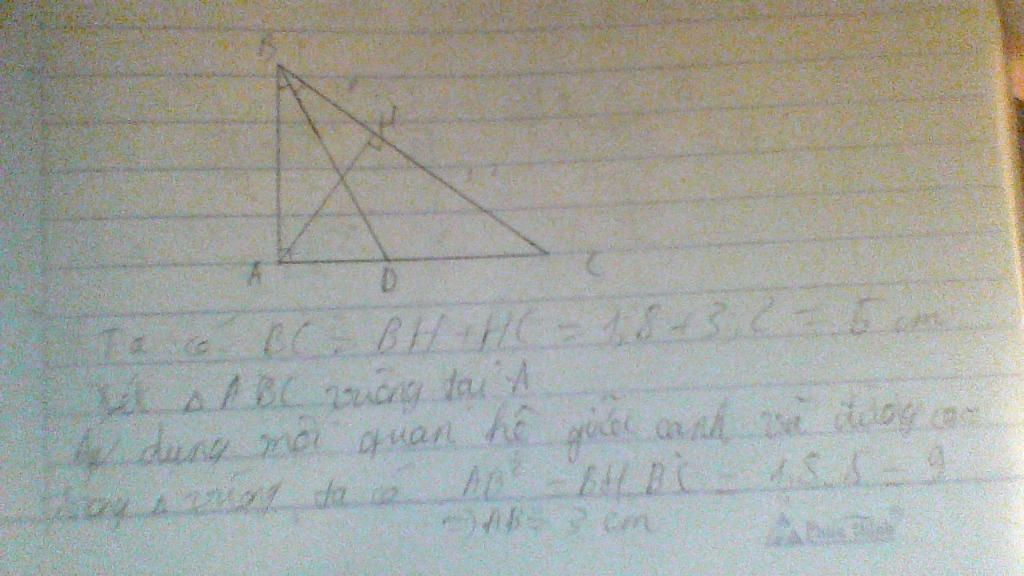 B
H
A
D
C
Ta có BC = BH + HC = 1,8 + 3,2 = 5 cm
Xét △ ABC vuông tại A
Áp dụng mối quan hệ giữa cạnh và đường cao
trong △ vuông, ta có AB² = BH.BC = 1,8.5 = 9
=> AB = 3 cm